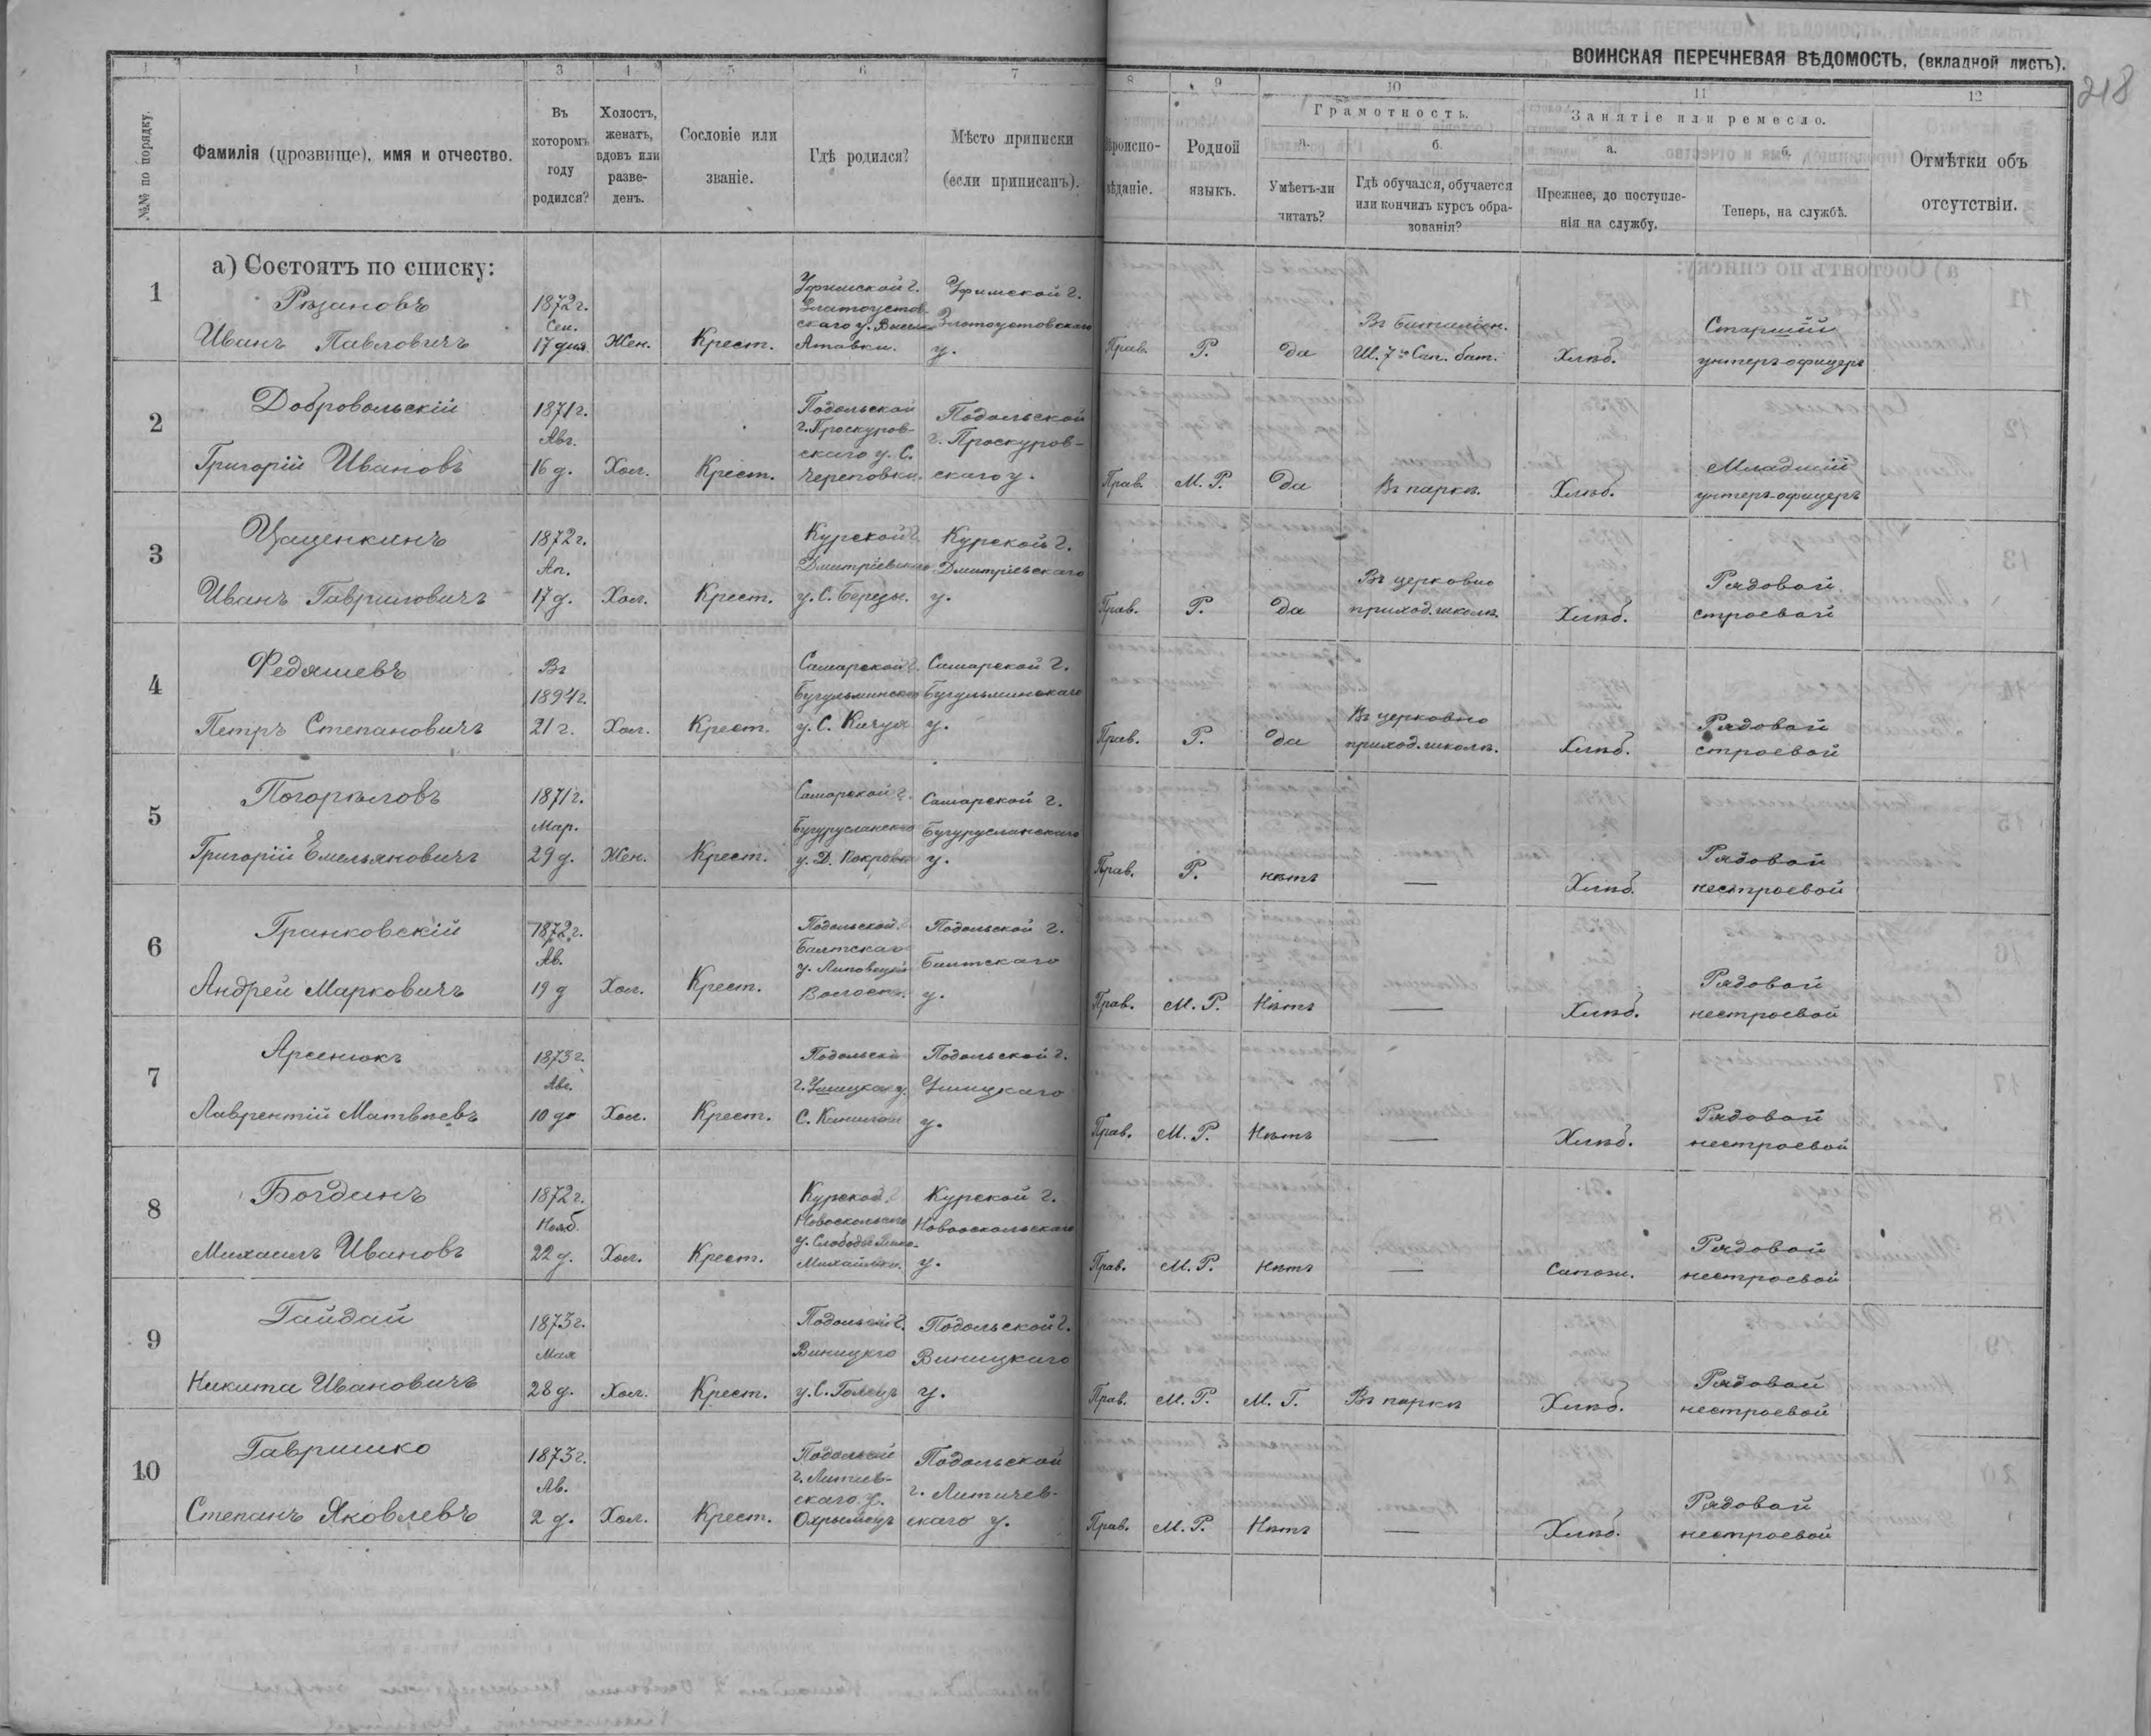 ВОИНСКАЯ ПЕРЕЧНЕВАЯ ВѢДОМОСТЬ, (вкладной листъ).
218
1 1 3 4 5 6 7 8 9 10 11 12
№№ по порядку.
Фамилія (прозвище), имя и отчество.
Въ которомъ году родился?
Холостъ, женатъ, вдовъ или разве-денъ.
Сословіе или званіе.
Гдѣ родился?
Мѣсто приписки (если приписанъ).
Вѣроиспо-вѣданіе.
Родной языкъ.
Грамотность.
а. Умѣетъ-ли читать?
б. Гдѣ обучался, обучается или кончилъ курсъ обра-зованія?
Занятіе или ремесло.
а. Прежнее, до поступле-нія на службу.
б. Теперь, на службѣ.
Отмѣтки объ отсутствіи.
а) Состоятъ по списку:
1 Рязановъ Иванъ Павловичъ 1872 г. Сен. 17 дня Жен. Крест. Уфимской г. Златоустов-скаго у. Уфимской г. Златоустовскаго у. Прав. Р. да Въ баталіон. Ш. 7го Сап. бат. Хлѣб. Старшій унтеръ-офицеръ
2 Добровольскій Григорій Ивановъ 1871 г. Авг. 16 д. Хол. Крест. Подольской г. Проскуров-скаго у. С. Череповки. Подольской г. Проскуров-скаго у. Прав. М. Р. Да Въ паркѣ. Хлѣб. Младшій унтеръ-офицеръ
3 Иванъ Гавриловичъ 1872 г. Ап. 17 д. Хол. Крест. Курской г. Дмитріевскаго у. С. Курской г. Дмитріевскаго у. Прав. Р. Да Въ церковно приход. школѣ. Хлѣб. Рядовой строевой
4 Федяшевъ Петръ Степановичъ Въ 1894 г. 21 г. Хол. Крест. Самарской г. Бугульминскаго у. С. Кичуя Самарской г. Бугульминскаго у. Прав. Р. да Въ церковно приход. школѣ. Хлѣб. Рядовой строевой
5 Погорѣловъ Григорій Емельяновичъ 1871 г. Мар. 29 д. Жен. Крест. Самарской г. Бугурусланскаго у. Д. Покровка Самарской г. Бугурусланскаго у. Прав. Р. нѣтъ — Хлѣб. Рядовой нестроевой
6 Гранковскій Андрей Марковичъ 1872 г. Ав. 19 д Хол. Крест. Подольской г. Балтскаго у. Подольской г. Балтскаго у. Прав. М. Р. Нѣтъ — Хлѣб. Рядовой нестроевой
7 Арсенюкъ Лаврентій Матвѣевъ 1873 г. Авг. 10 д Хол. Крест. г. Ушицкаго у. Подольской г. Ушицкаго у. Прав. М. Р. Нѣтъ — Хлѣб. Рядовой нестроевой
8 Богдинъ Михаилъ Ивановъ 1872 г. Нояб. 22 д. Хол. Крест. Курской г. у. Слободы Михайловки. Курской г. Новооскольскаго у. Прав. М. Р. Нѣтъ — Сапож. Рядовой нестроевой
9 Гайдай Никита Ивановичъ 1873 г. Мая 28 д. Хол. Крест. у. С. Подольской г. Виницкаго у. Прав. М. Р. М. Г. Въ паркѣ Хлѣб. Рядовой нестроевой
10 Гавришко Степанъ Яковлевъ 1873 г. Ав. 2 д. Хол. Крест. скаго у. Подольской г. Литичев-скаго у. Прав. М. Р. Нѣтъ — Хлѣб. Рядовой нестроевой